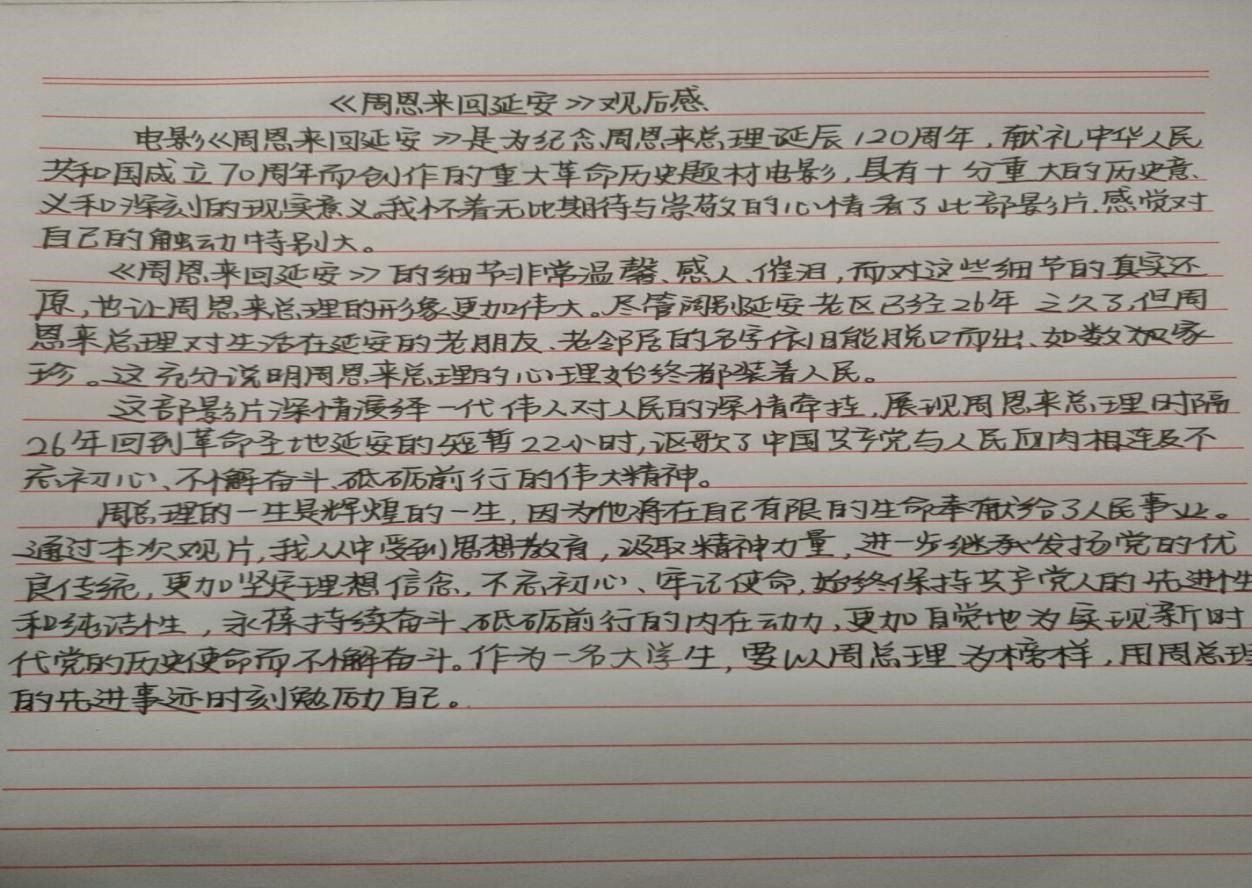 《周恩来回延安》观后感
电影《周恩来回延安》是为纪念周恩来总理诞辰120周年，献礼中华人民
共和国成立70周年而创作的重大革命历史题材电影，具有十分重大的历史意
义和深刻的现实意义。我怀着无比期待与崇敬的心情看了此部影片，感觉对
自己的触动特别大。
《周恩来回延安》的细节非常温馨、感人、催泪，而对这些细节的真实还
原，也让周恩来总理的形象更加伟大。尽管阔别延安老区已经26年之久了，但周
恩来总理对生活在延安的老朋友、老邻居的名字依旧能脱口而出、如数如家
珍。这充分说明周恩来总理的心理始终都装着人民。
这部影片深情演绎一代伟人对人民的深情牵挂，展现周恩来总理时隔
26年回到革命圣地延安的短暂22小时，讴歌了中国共产党与人民血肉相连及不
忘初心、不懈奋斗、砥砺前行的伟大精神。
周总理的一生是辉煌的一生，因为他将在自己有限的生命奉献给了人民事业。
通过本次观片，我从中受到思想教育，汲取精神力量，进一步继承发扬党的优
良传统，更加坚定理想信念，不忘初心、牢记使命，始终保持共产党人的先进性
和纯洁性，永葆持续奋斗、砥砺前行的内在动力，更加自觉地为实现新时
代党的历史使命而不懈奋斗。作为一名大学生，要以周总理为榜样，用周总理
的先进事迹时刻勉励自己。